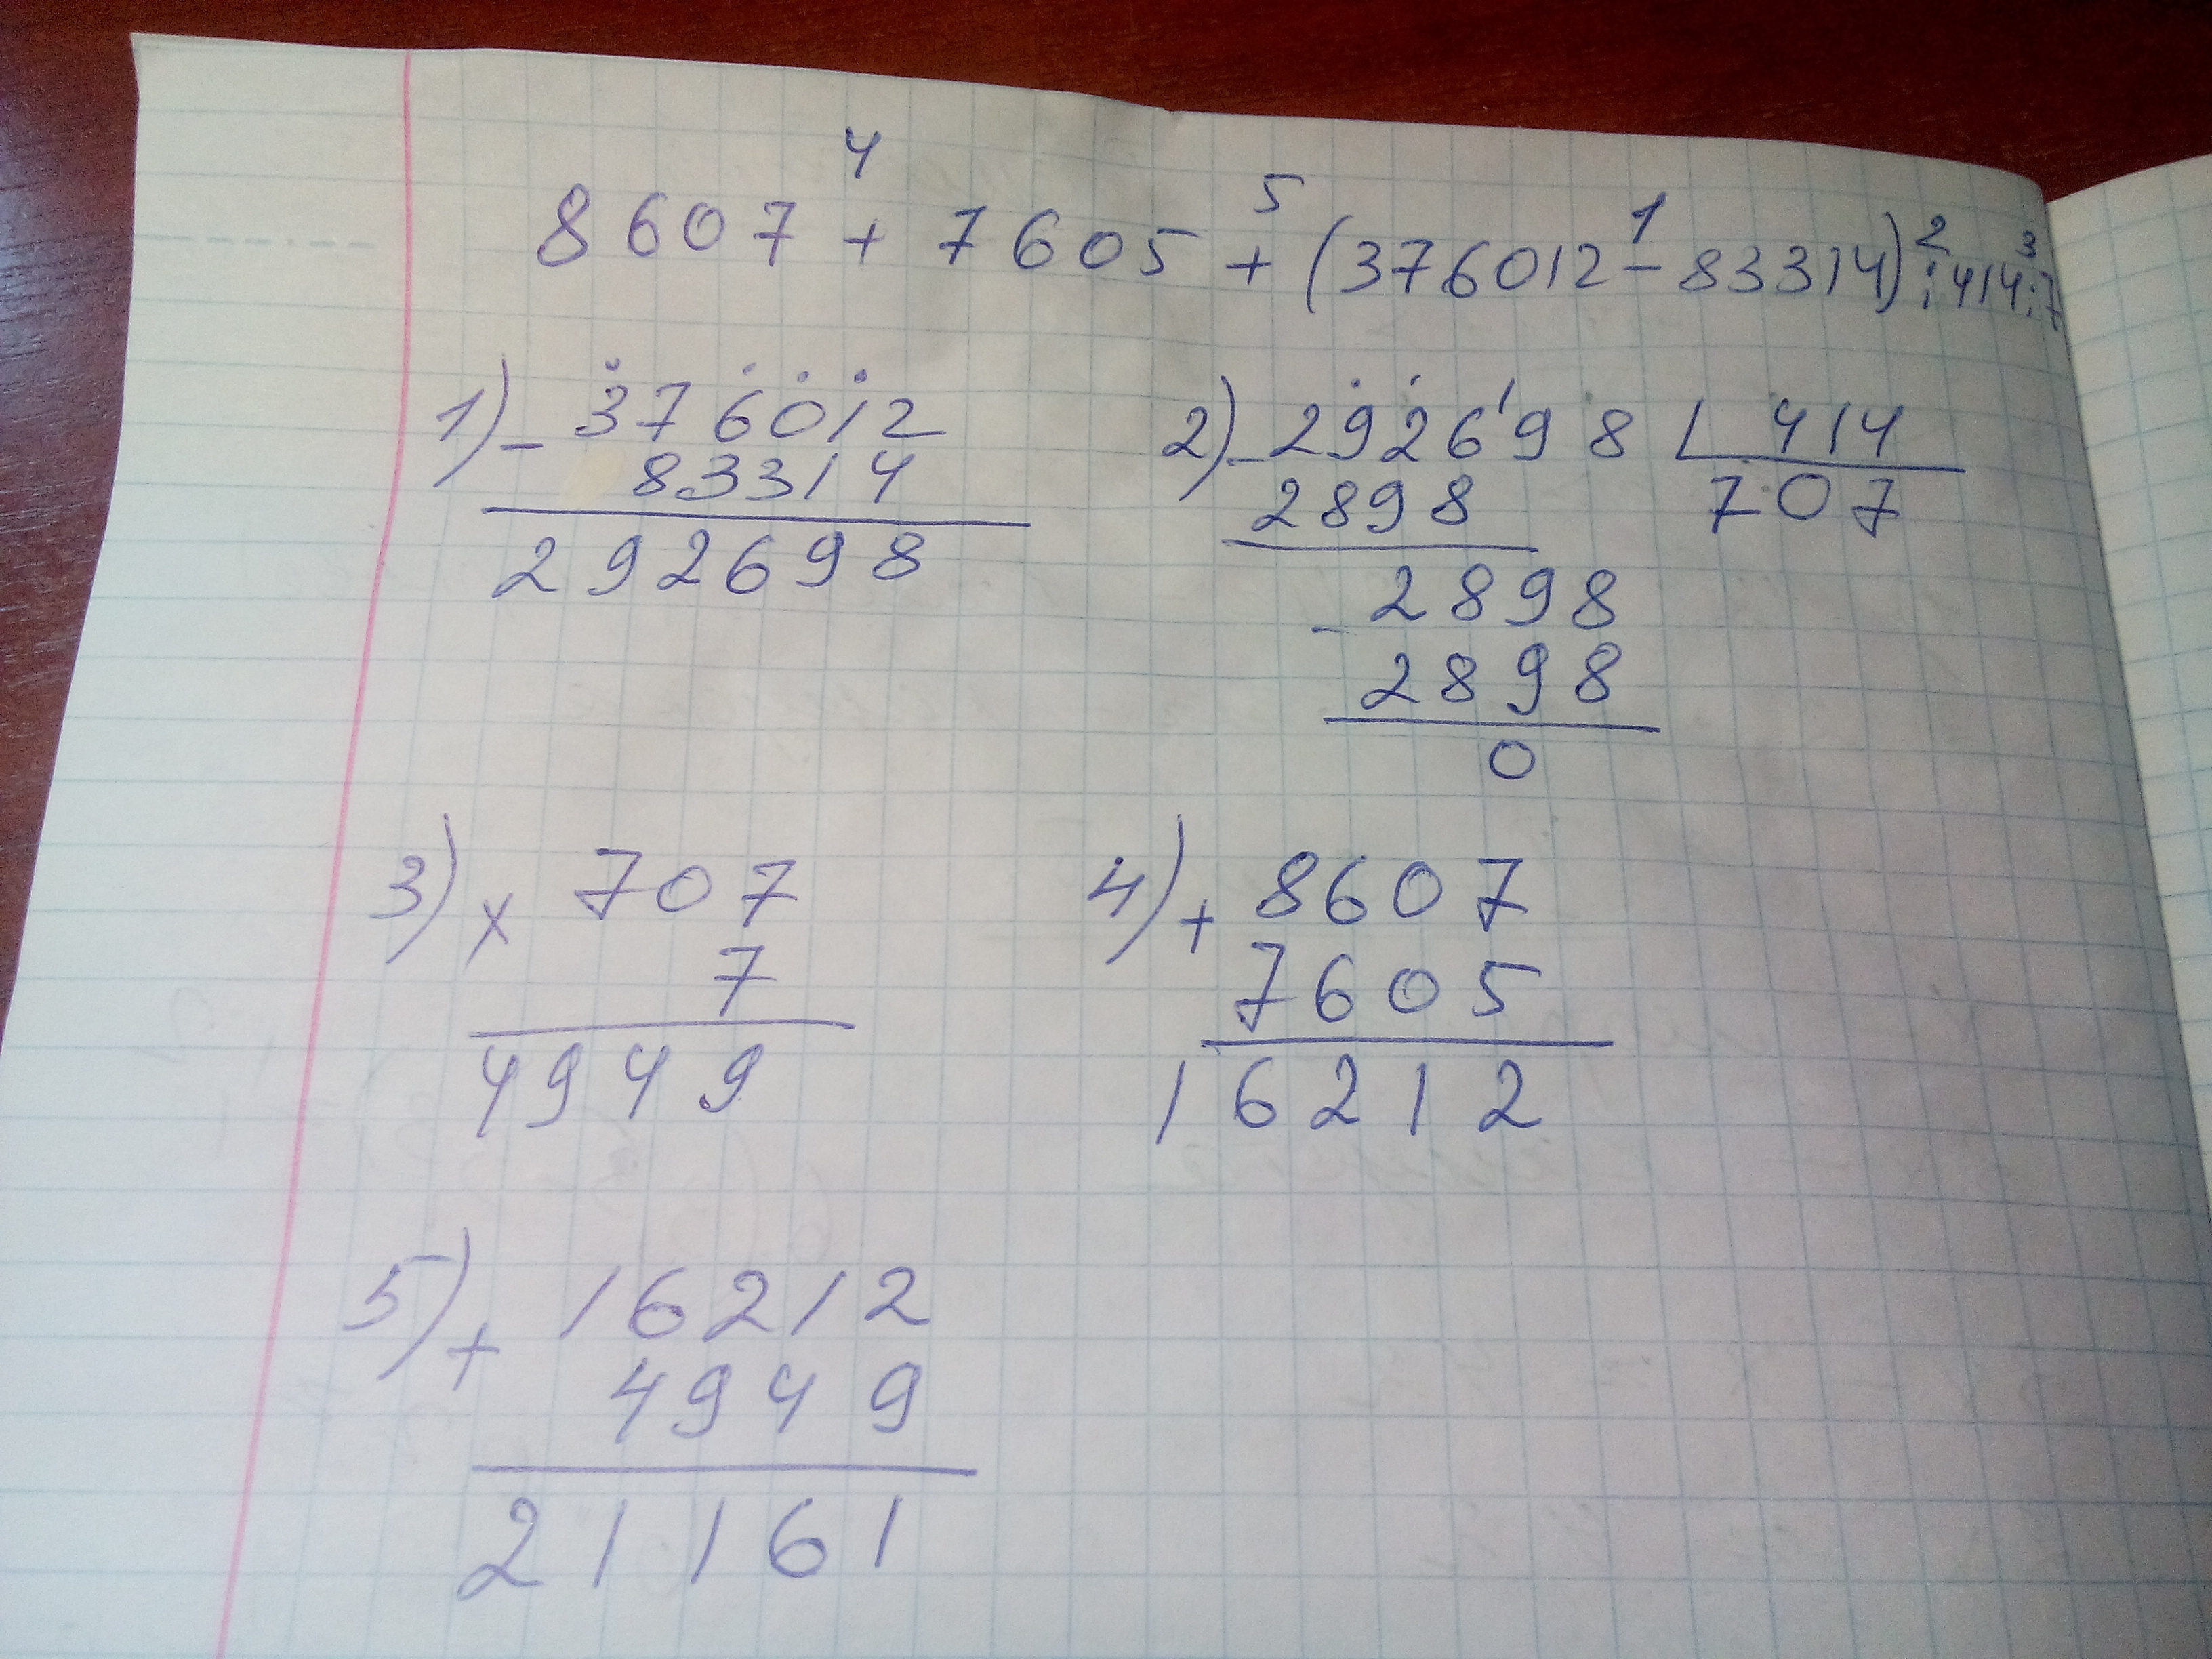 4 5 1 2 3
8607 + 7605 + (376012 - 83314) : 414 : 7
1) - 376012
83314
292698
2) - 292698 | 414
2898 707
- 2898
2898
0
3) x 707
7
4949
4) + 8607
7605
16212
5) + 16212
4949
21161